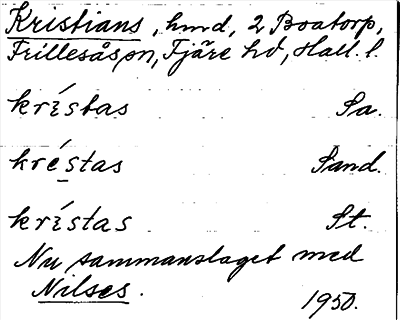 Kristians, hmd, 2 Boatorp,
Frillesåspn, Fjäre hd, Hall. l.
krístas Pa.
kréstas Sand.
krístas St.
Nu sammanslaget med
Nilses.
1950.